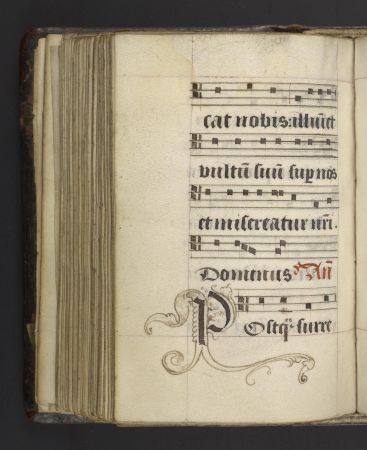 cat nobis: illuīet
vultū suū sup nos
et misereatur nr̄i.
Domenus Añ
Postq̄ surre